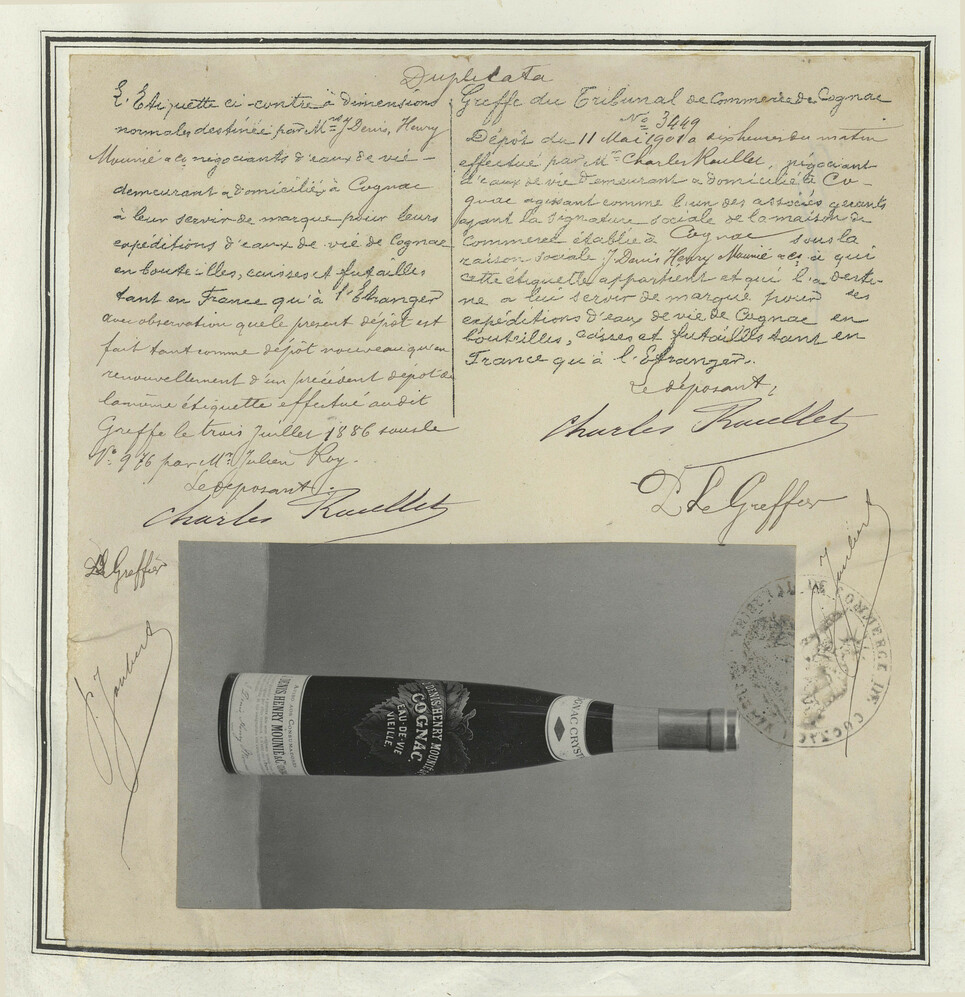 Duplicata
L'Etiquette ci-contre à dimensions
normales destinée par Mrs J Denis, Henry
Mounié & co négociants d'eaux de vie -
demeurant & domiciliés à Cognac
à leur servir de marque pour leurs
expéditions d'eaux de vie de Cognac
en bouteilles, caisses et futailles
tant en France qu'à l'Etranger
avec observation que le present dépôt est
fait tant comme dépôt nouveau qu'en
renouvellement d'un précédent dépôt de
la même étiquette effectué au dit
Greffe le trois Juillet 1886 sous le
No. 976 par Mr. Julien Roy.
Le déposant.
Charles Roullet
Le Greffier
Greffe du Tribunal de Commerce de Cognac
No 3449
Dépôt du 11 Mai 1901 à six heures du matin
effectué par Mr Charles Roullet, négociant
d'eaux de vie demeurant & domicilié à Co-
gnac agissant comme l'un des associés gérants
ayant la signature sociale de la maison de
Commerce établie à Cognac sous la
raison sociale J Denis Henry Mounié & co à qui
cette étiquette appartient et qui l'a desti-
née à leur servir de marque pour ses
expéditions d'eaux de vie de Cognac en
bouteilles, caisses et futailles tant en
France qu'à l'Etranger.
Le déposant,
Charles Roullet
Le Greffier
Joubert
Joubert
TRIBUNAL DE COMMERCE DE COGNAC
AVIS AUX CONSOMMATEURS
DENIS HENRY MOUNIÉ & Co
DENIS HENRY MOUNIÉ
COGNAC
EAU-DE-VIE
VIEILLE
GNAC CRYST